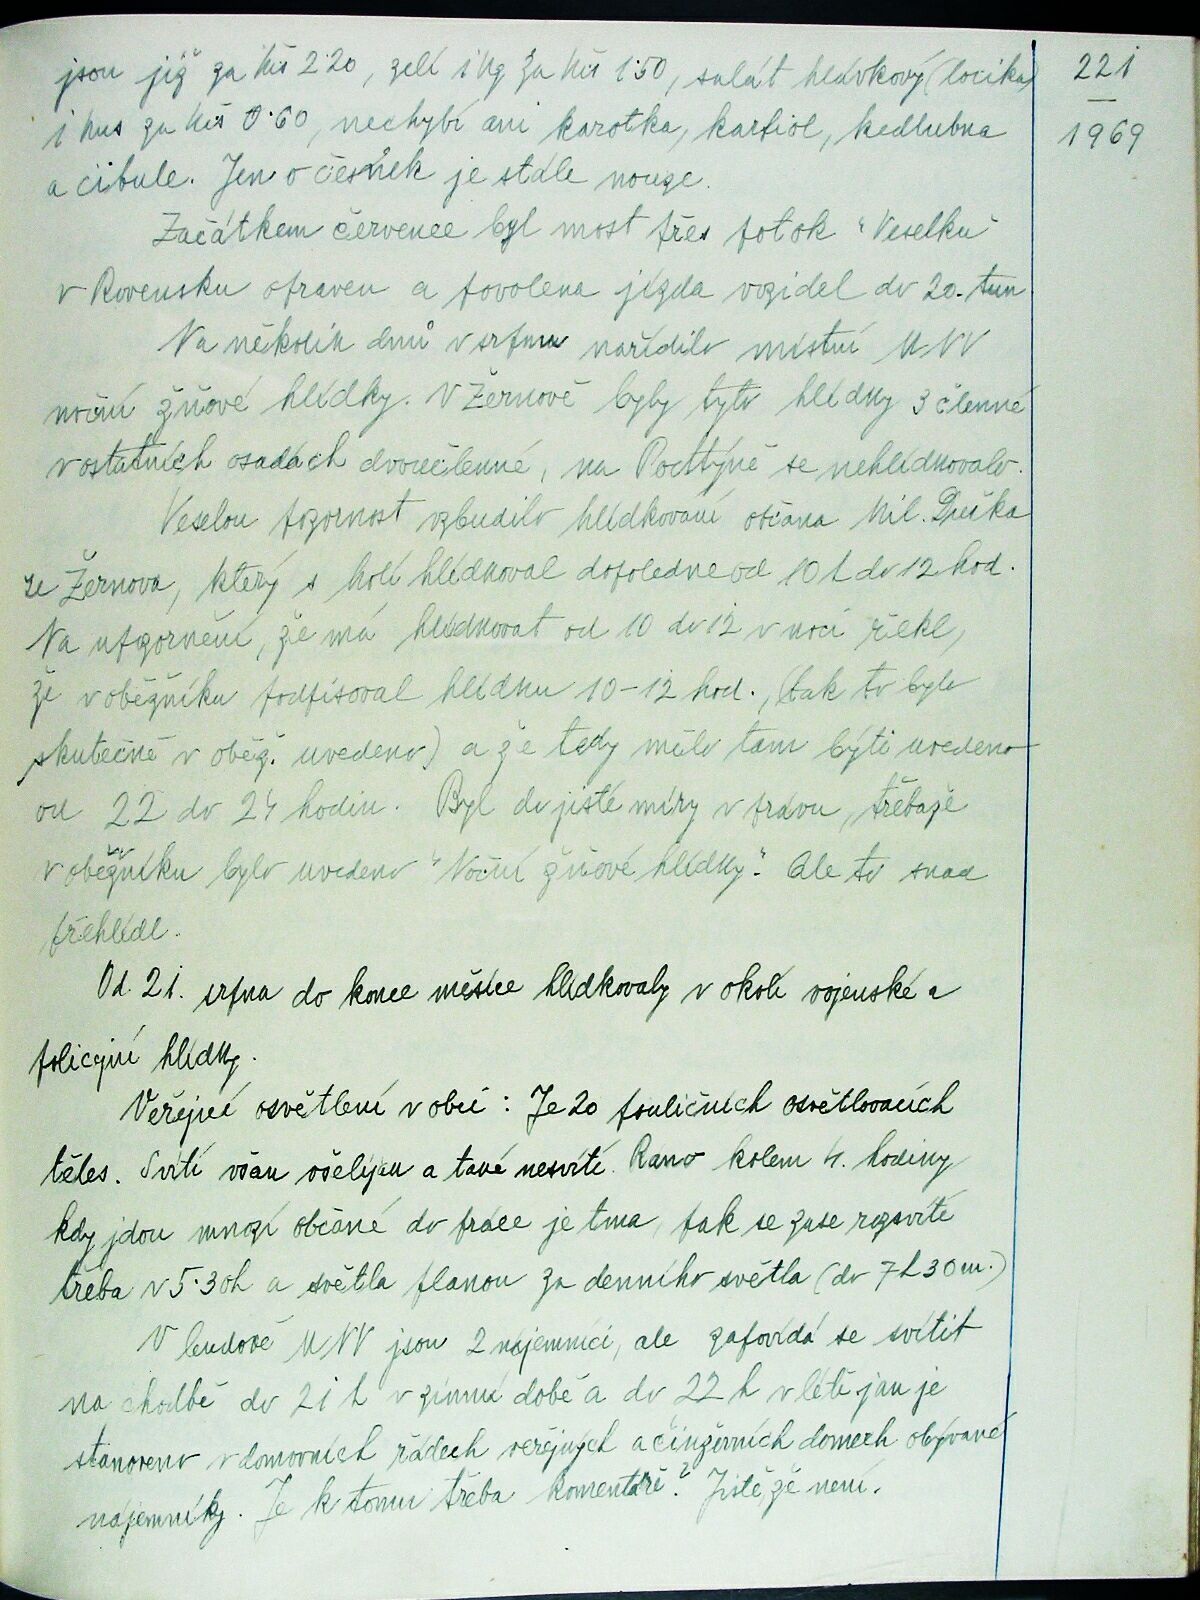 jsou již za Kčs 2·20, zelí 1 kg za Kčs 1·50, salát hlávkový (locika)
1 kus za Kčs 0·60, nechybí ani karotka, karfiol, kedlubna
a cibule. Jen o česnek je stále nouze.
Začátkem července byl most přes potok "Veselku"
v Rovensku opraven a povolena jízda vozidel do 20. tun
Na několik dnů v srpnu nařídilo místní MNV
noční žňové hlídky. V Žernově byly tyto hlídky 3 členné
v ostatních osadách dvoučlenné, na Podtýně se nehlídkovalo.
Veselou pozornost vzbudilo hlídkování občana Mil. Duška
ze Žernova, který s holí hlídkoval dopoledne od 10 h do 12 hod.
Na upozornění, že má hlídkovat od 10 do 12 v noci řekl,
že v oběžníku podpisoval hlídku 10-12 hod., (tak to bylo
skutečně v oběž. uvedeno) a že tedy mělo tam býti uvedeno
od 22 do 24 hodin. Byl do jisté míry v právu, třebaže
v oběžníku bylo uvedeno "Noční žňové hlídky". Ale to snad
přehlédl.
Od 21. srpna do konce měsíce hlídkovaly v okolí vojenské a
policejní hlídky.
Veřejné osvětlení v obci: Je 20 pouličních osvětlovacích
těles. Svítí však všelijak a také nesvítí. Ráno kolem 4. hodiny
kdy jdou mnozí občané do práce je tma, pak se zase rozsvítí
třeba v 5·30h a světla planou za denního světla (do 7 h 30 m.)
V budově MNV jsou 2 nájemníci, ale zapovídá se svítit
na chodbě do 21 h v zimní době a do 22 h v létě jak je
stanoveno v domovních řádech veřejných a činžovních domech obývané
nájemníky. Je k tomu třeba komentáře? Jistě, že není.
221
1969